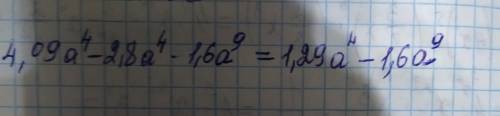 4,09a⁴-2,8a⁴-1,6a⁹=1,29a⁴-1,6a⁹